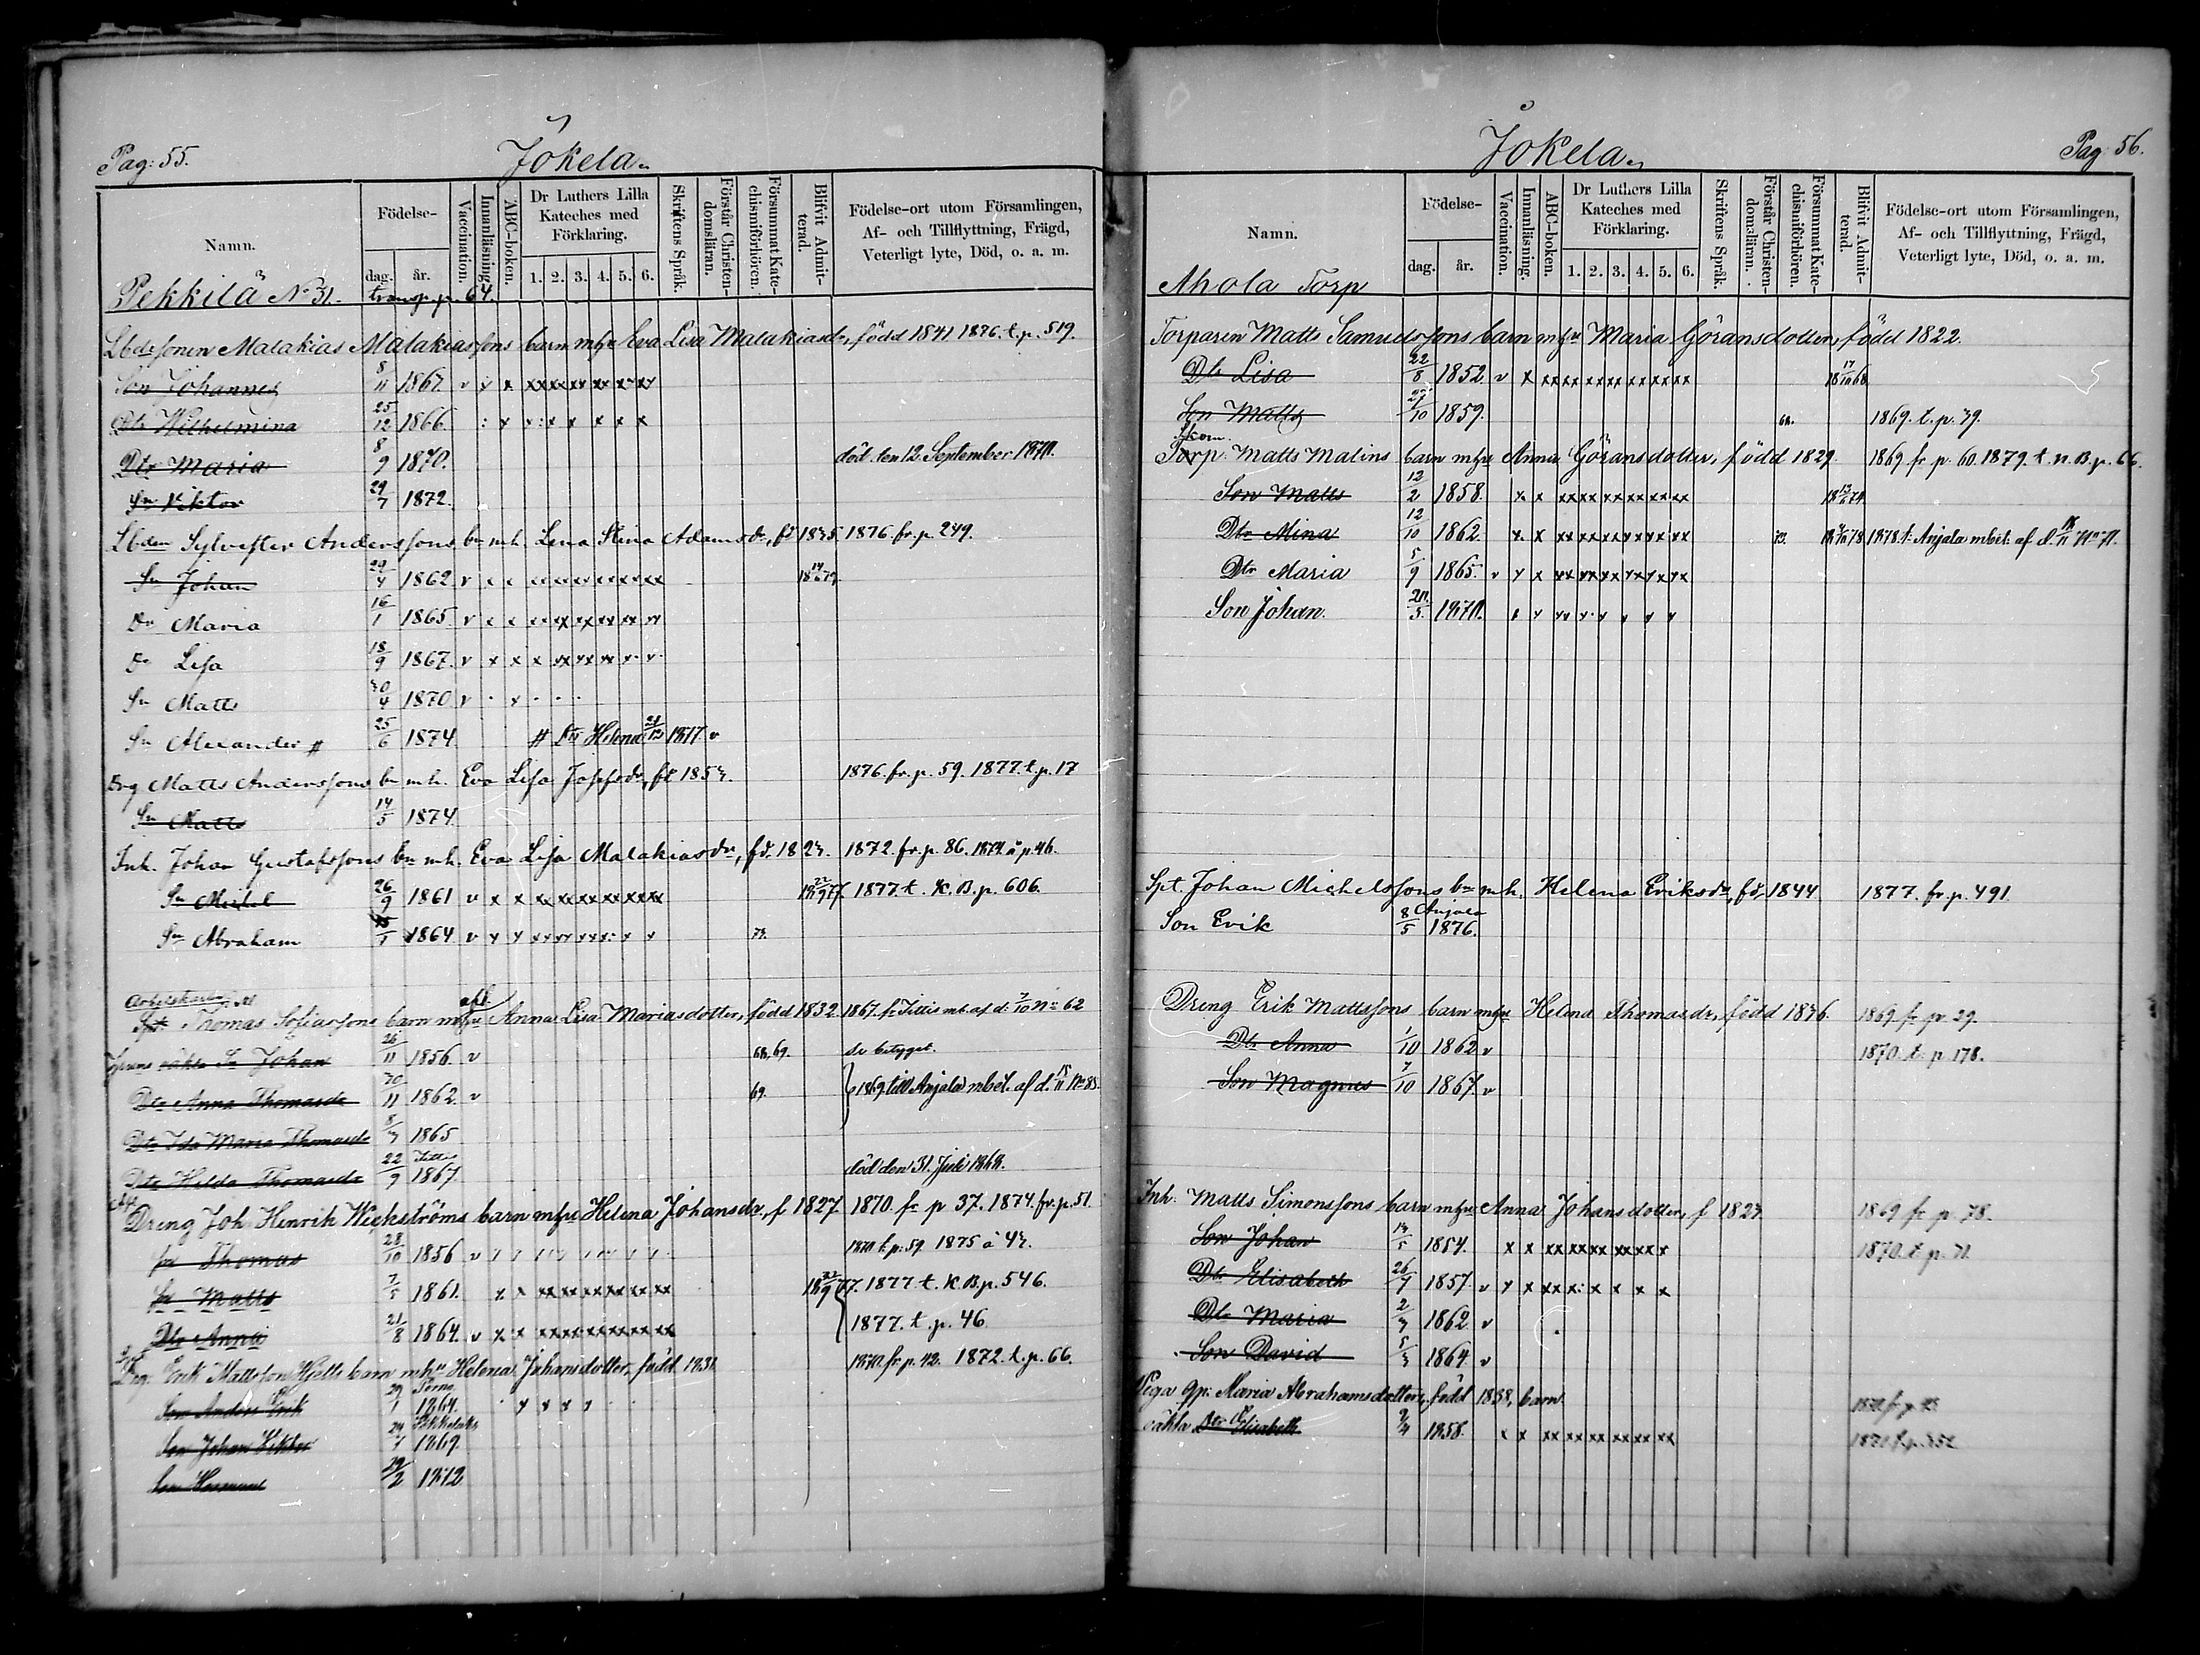 Pag: 55.
Jokela.
Namn.
Födelse-
dag.
år.
Vaccination.
Innanläsning.
ABC-boken.
Dr Luthers Lilla
Kateches med
Förklaring.
1. 2. 3. 4. 5. 6.
Skriftens Språk.
Förstår Christen-
domsläran.
Försummat Kate-
chismiförhören.
Blifvit Admit-
terad.
Födelse-ort utom Församlingen,
Af- och Tillflyttning, Frägd,
Veterligt lyte, Död, o. a. m.
Pekkilä No 31. transp. p. 64.
Lbdesonen Malakias Malakiassons barn mhu Eva Lisa Malakiasdr, född 1841 1876. t. p. 519.
Son Johannes 8/11 1867. v
Dtr Wilhelmina 25/12 1866.
Dtr Maria 8/9 1870. död den 12 September 1870.
Sn Viktor 29/7 1872.
Lbden Sylvester Anderssons bn mh. Lena Stina Adamsdr, fd 1835. 1876. fr. p. 249.
Sn Johan 29/4 1862 v
Dr Maria 16/1 1865. v
Dr Lisa 18/9 1867. v
Sn Matts 30/4 1870 v
Sn Alexander # 25/6 1874 # Dtr Helena 21/12 1877 v
Drg Matts Anderssons bn mh. Eva Lisa Josefsdr, fd 1853. 1876. fr. p. 59. 1877. t. p. 17
Sn Matts 14/5 1874.
Inh. Johan Gustafssons bn mh. Eva Lisa Malakiasdr, fd. 1823. 1872. fr. p. 86. 1874. å p. 46.
Sn Michel 26/9 1861 v 18 22/9 77. 1877 t. K. B. p. 606.
Sn Abraham 1864 v 73.
Thomas Sofiassons barn mhu Anna Lisa Mariasdotter, född 1832 1867. fr. Tittis mb. af d. 7/10 No 62
oäkta Sn Johan 26/11 1856. v 68. 69. se betyget.
Dtr Anna Thomasdr 30/11 1862. v 69. 1869 till Anjala mbet. af d. 15/11 No 83.
Dtr Ida Maria Thomasdr 8/3 1865
Dtr Hilda Thomasdr 22/9 Tittis 1867. död den 31. Juli 1868.
Dreng Joh. Henrik Wickströms barn mhu Helena Johansdr, f 1827. 1870. fr p 37. 1874. fr. p. 51.
Sn Thomas 28/10 1856 v 1870 t. p. 59. 1875 å 43.
Sn Matts 7/5 1861. 18 22/9 77. 1877 t. K. B. p. 546.
Dtr Anna 21/8 1864. v 1877. t. p. 46.
Drg. Erik Mattsson Hjelts barn mhu Helena Johansdotter, född 1831. 1870 fr. p. 42. 1872. t. p. 66.
Son Anders Erik 29/1 1864.
Son Johan Viktor 24/7 1869.
Son Herman 29/2 1872
Jokela.
Pag: 56.
Namn.
Födelse-
dag.
år.
Vaccination.
Innanläsning.
ABC-boken.
Dr Luthers Lilla
Kateches med
Förklaring.
1. 2. 3. 4. 5. 6.
Skriftens Språk.
Förstår Christen-
domsläran.
Försummat Kate-
chismiförhören.
Blifvit Admit-
terad.
Födelse-ort utom Församlingen,
Af- och Tillflyttning, Frägd,
Veterligt lyte, Död, o. a. m.
Ahola Torp
Torparen Matts Samuelssons barn mhu Maria Göransdotter, född 1822.
Dtr Lisa 22/8 1852 v
Son Matts 27/10 1859. 68. 1869. t. p. 79.
Torp. Matts Malins barn mhu Anna Göransdotter, född 1829. 1869. fr. p. 60. 1879. t. N. B. p. 66.
Son Matts 12/2 1858.
Dtr Mina 12/10 1862. 73. 1878. t. Anjala mbet. af d.
Dtr Maria 5/9 1865. v
Son Johan. 1870.
Spt. Johan Michelssons bn mh. Helena Eriksdr, fd, 1844 1877. fr. p. 491.
Son Erik 8/5 Anjala 1876.
Dreng Erik Mattssons barn mhu Helena Thomasdr, född 1836. 1869. fr. p. 29.
Dtr Anna 1/10 1862 v 1870. t. p. 178.
Son Magnus 7/10 1867. v
Inh. Matts Simonssons barn mhu Anna Johansdotter, f 1823. 1869 fr. p. 78.
Son Johan 13/5 1854. 1870. t. p. 71.
Dtr Elisabeth 26/7 1857. v
Dtr Maria 2/3 1862 v
Son David 5/3 1864. v
Piga Maria Abrahamsdotters, född 1838, barn
oäkta Dtr Elisabeth 1858.